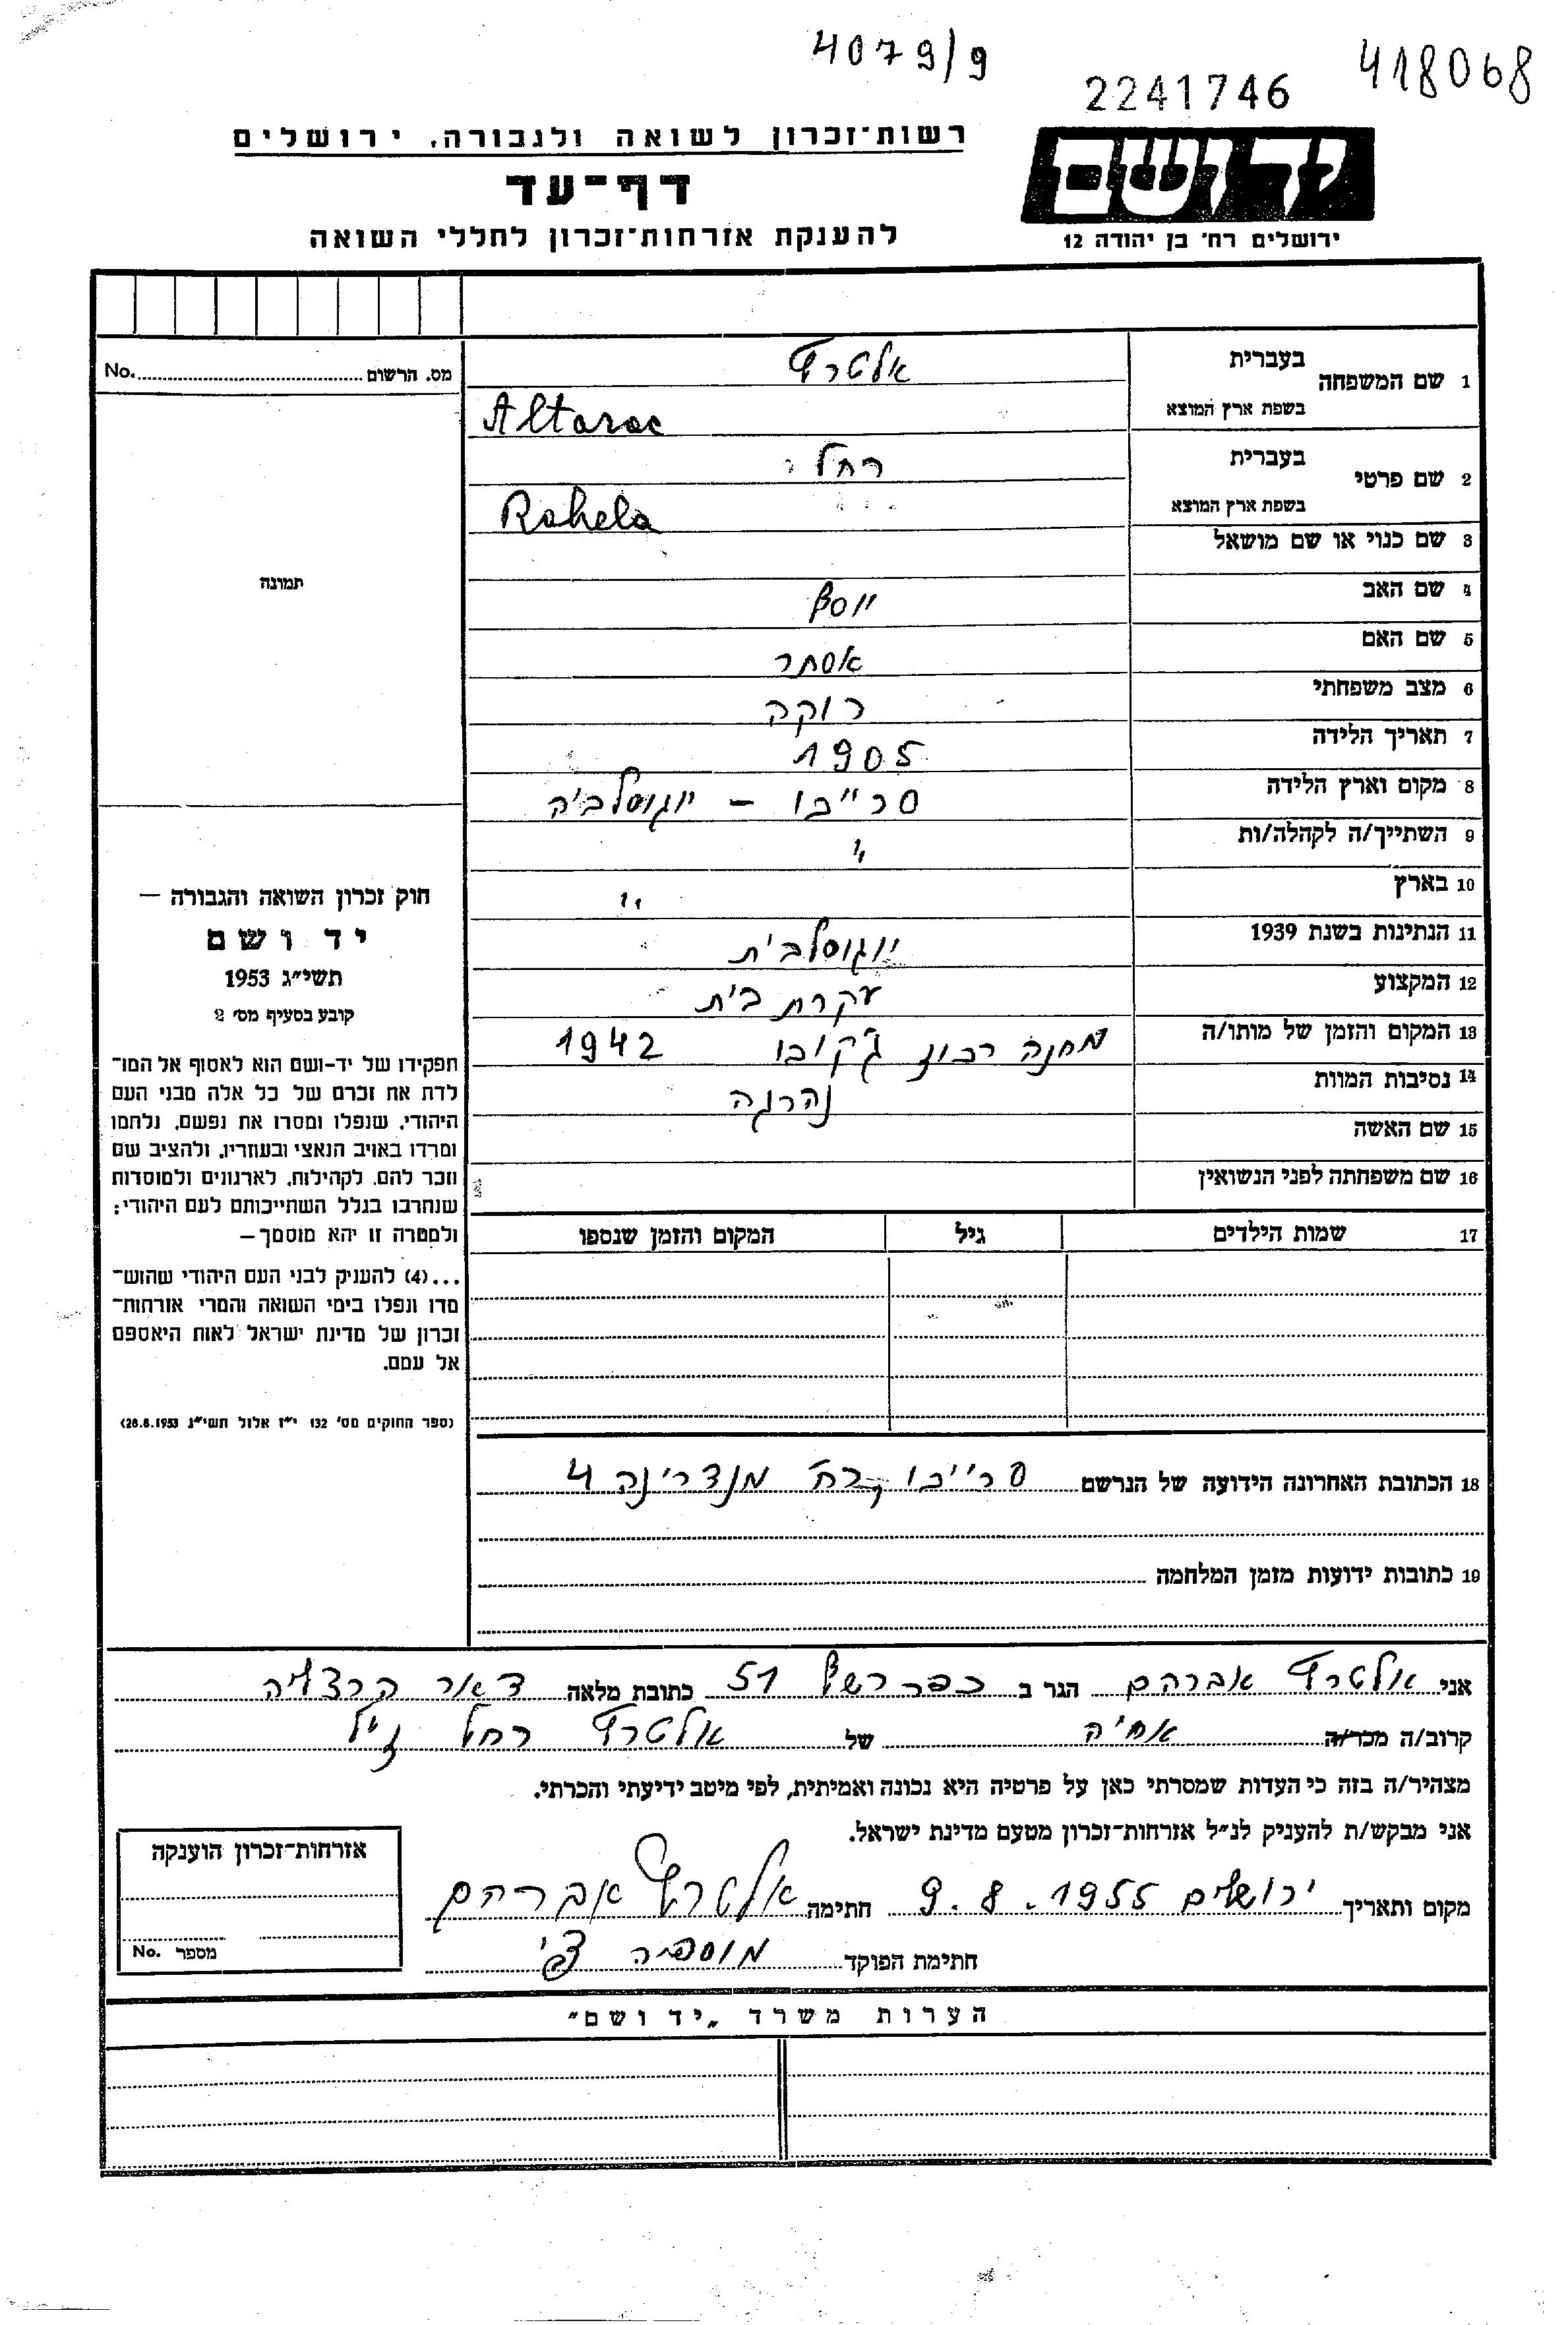 4079/9
2241746
418068
רשות־זכרון לשואה ולגבורה, ירושלים
דף־עד
להענקת אזרחות־זכרון לחללי השואה
יד ושם
ירושלים רח׳ בן יהודה 12
מס. הרשום No.
תמונה
1 שם המשפחה
בעברית
אלטרץ
בשפת ארץ המוצא
Altarac
2 שם פרטי
בעברית
רחל
בשפת ארץ המוצא
Rahela
3 שם כנוי או שם מושאל
4 שם האב יוסף
5 שם האם אסתר
6 מצב משפחתי רוקה
7 תאריך הלידה 1905
8 מקום וארץ הלידה סרייבו – יוגוסלביה
9 השתייך/ה לקהלה/ות "
10 בארץ "
11 הנתינות בשנת 1939 יוגוסלבית
12 המקצוע עקרת בית
13 המקום והזמן של מותו/ה מחנה רכוז ג'קובו 1942
14 נסיבות המוות נהרגה
15 שם האשה
16 שם משפחתה לפני הנשואין
17 שמות הילדים גיל המקום והזמן שנספו
18 הכתובת האחרונה הידועה של הנרשם סרייבו רח' מנדרינה 4
19 כתובות ידועות מזמן המלחמה
חוק זכרון השואה והגבורה —
יד ושם
תשי״ג 1953
קובע בסעיף מס׳ 2
תפקידו של יד־ושם הוא לאסוף אל המו־
לדת את זכרם של כל אלה מבני העם
היהודי, שנפלו ומסרו את נפשם, נלחמו
ומרדו באויב הנאצי ובעוזריו, ולהציב שם
וזכר להם, לקהילות, לארגונים ולמוסדות
שנחרבו בגלל השתייכותם לעם היהודי;
ולמטרה זו יהא מוסמך —
...(4) להעניק לבני העם היהודי שהוש־
מדו ונפלו בימי השואה והמרי אזרחות־
זכרון של מדינת ישראל לאות היאספם
אל עמם.
(ספר החוקים מס׳ 132 י״ז אלול תשי״ג 28.8.1953)
אני אלטרץ אברהם הגר ב כפר רש"ל 51 כתובת מלאה דאר הרצליה
קרוב/ה מכר/ה אחיה של אלטרץ רחל ז"ל
מצהיר/ה בזה כי העדות שמסרתי כאן על פרטיה היא נכונה ואמיתית, לפי מיטב ידיעתי והכרתי.
אני מבקש/ת להעניק לנ״ל אזרחות־זכרון מטעם מדינת ישראל.
מקום ותאריך ירושלים 9.8.1955 חתימה אלטרץ אברהם
חתימת הפוקד
אזרחות־זכרון הוענקה
מספר No.
הערות משרד „יד ושם״